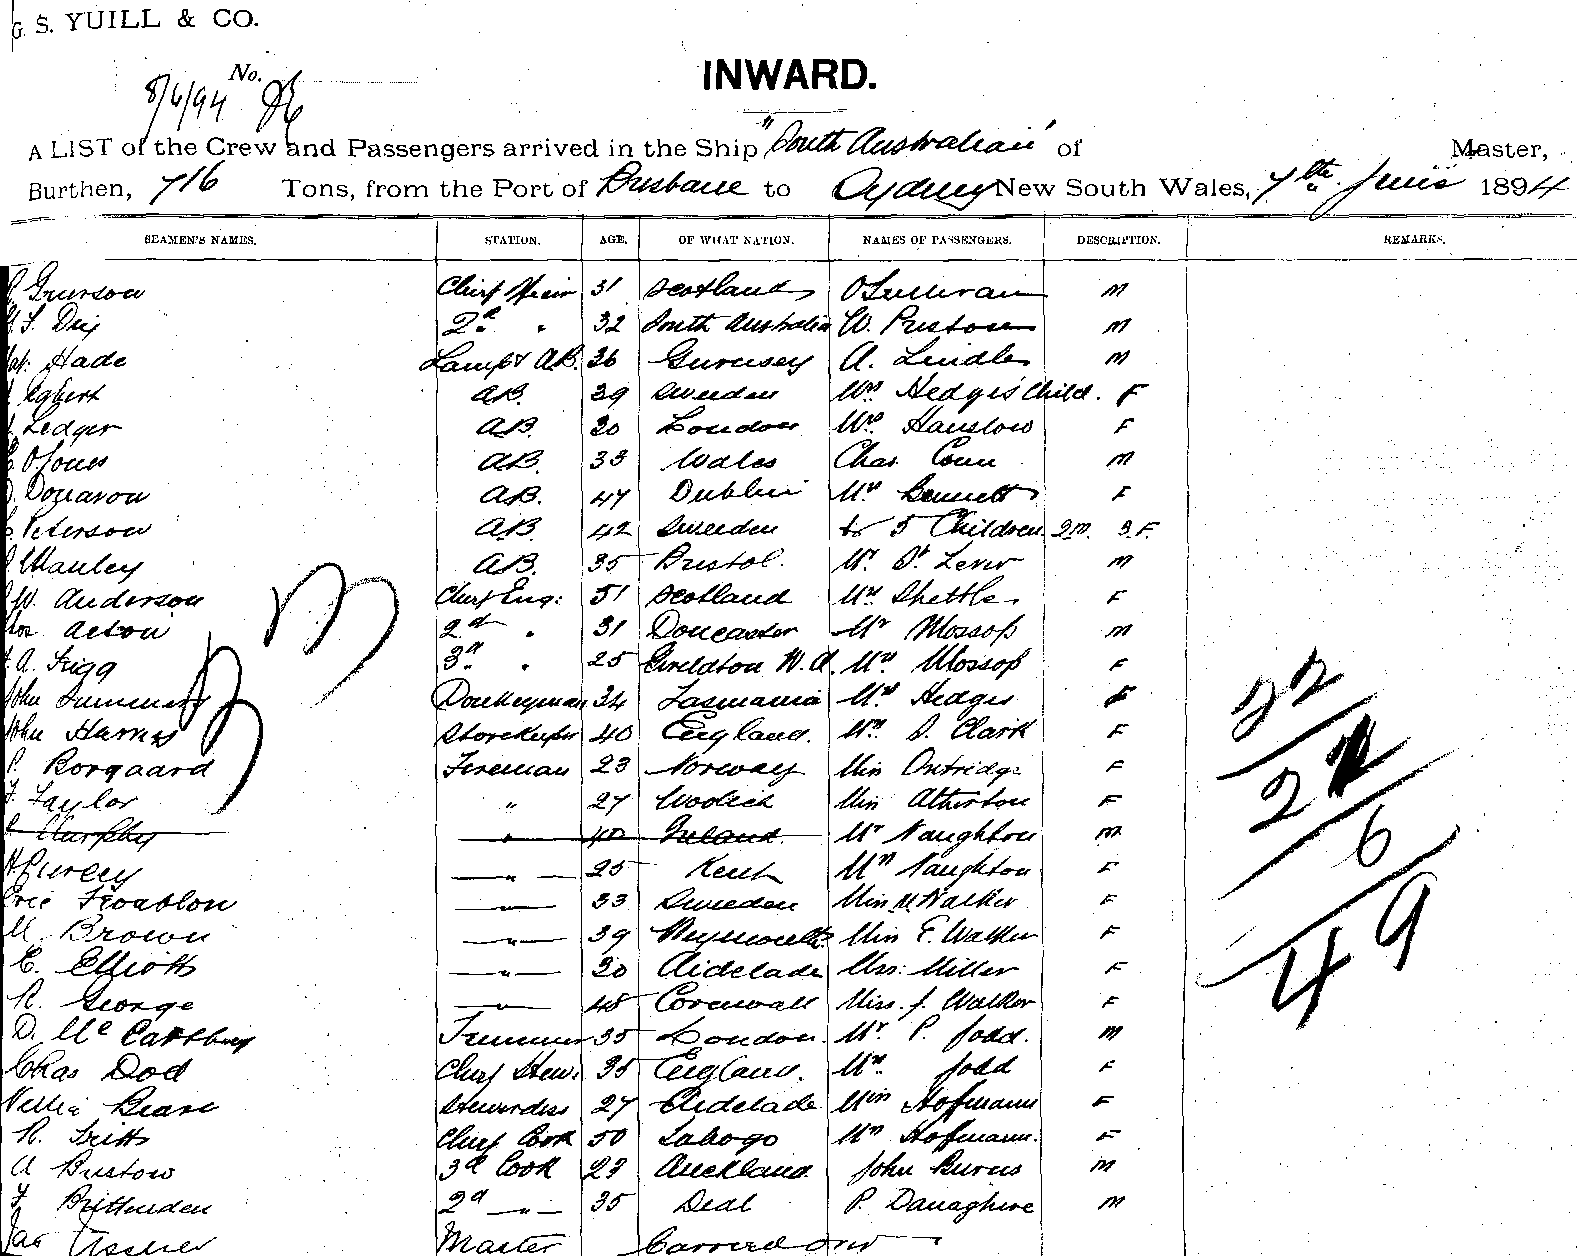 G. S. YUILL & CO.
No.
8/6/94
INWARD.
A LIST of the Crew and Passengers arrived in the Ship "South Australian" of Master,
Burthen, 716 Tons, from the Port of Brisbane to Sydney New South Wales, 7th June 1894
SEAMEN'S NAMES. STATION. AGE. OF WHAT NATION. NAMES OF PASSENGERS. DESCRIPTION. REMARKS.
Grierson Chief Officer 31 Scotland O'Sullivan M
2nd " 32 South Australia W. Preston M
Hade Lamps & AB. 36 Guernsey A. Lindle M
Egbert AB. 39 Sweden Mrs Hedges Child. F
Ledger AB. 30 London Mrs Hanslow F
O Jones AB. 33 Wales Chas. Conn M
Donavon AB. 47 Dublin Mrs Bennett F
Peterson AB. 42 Sweden & 5 Children 2 M. 3 F.
Manley AB. 35 Bristol. Mr M
W. Anderson Chief Eng: 51 Scotland Mrs Shettle F
Acton 2nd " 31 Doncaster Mr Mossop M
A. Trigg 3rd " 25 W. A. Mrs Mossop F
John Summers Donkeyman 34 Tasmania Mrs Hedges F
John Harris Storekeeper 40 England. Mrs Clark F
P. Borgaard Fireman 23 Norway Miss Outridge F
F. Taylor " 27 Woolich Miss Atherton F
Murphy " 40 Ireland. Mr Naughton M
" 25 Kent Mrs Naughton F
Eric " 33 Sweden Miss M Walker F
M. Brown " 39 Weymouth Miss E. Walker F
E. Elliott " 30 Aidelade Mrs. Miller F
R. George " 48 Cornwall Miss. J. Walker F
D. McCarthy Trimmer 35 London. Mr. P. Jodd. M
Chas Dod Chief Stew. 35 England. Mrs. Jodd F
Nellie Stewardess 27 Aidelade Miss Hofmann F
R. Chief Cook 50 Mrs Hofmann. F
A 3rd Cook 23 Auckland John Burns M
F Brittenden 2nd " 35 Deal P. Danaghue M
Jas Ussher Master Carried over
32
6
49